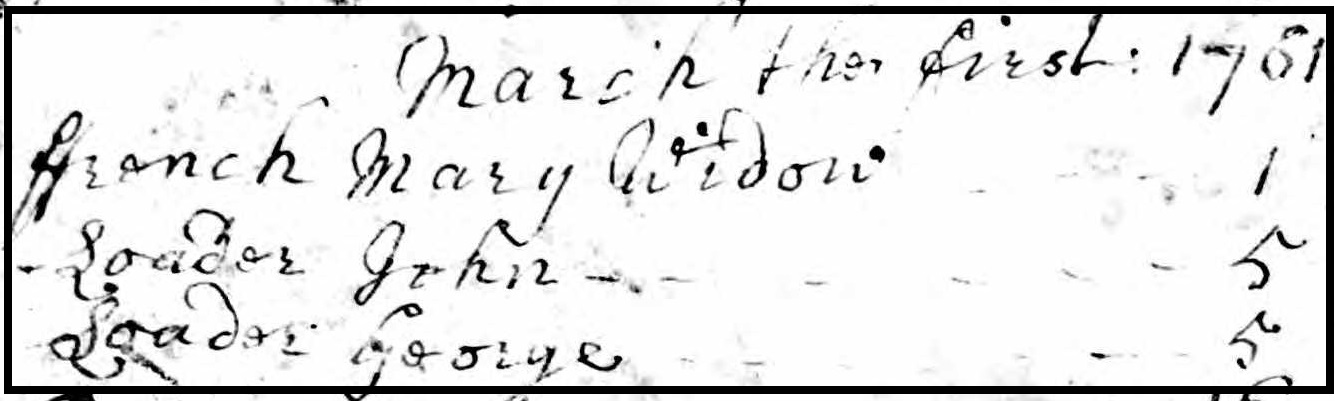 March the first: 1761
ffrench Mary Widow - - - 1
- Loader John - - - - - - 5
Loader George - - - 5